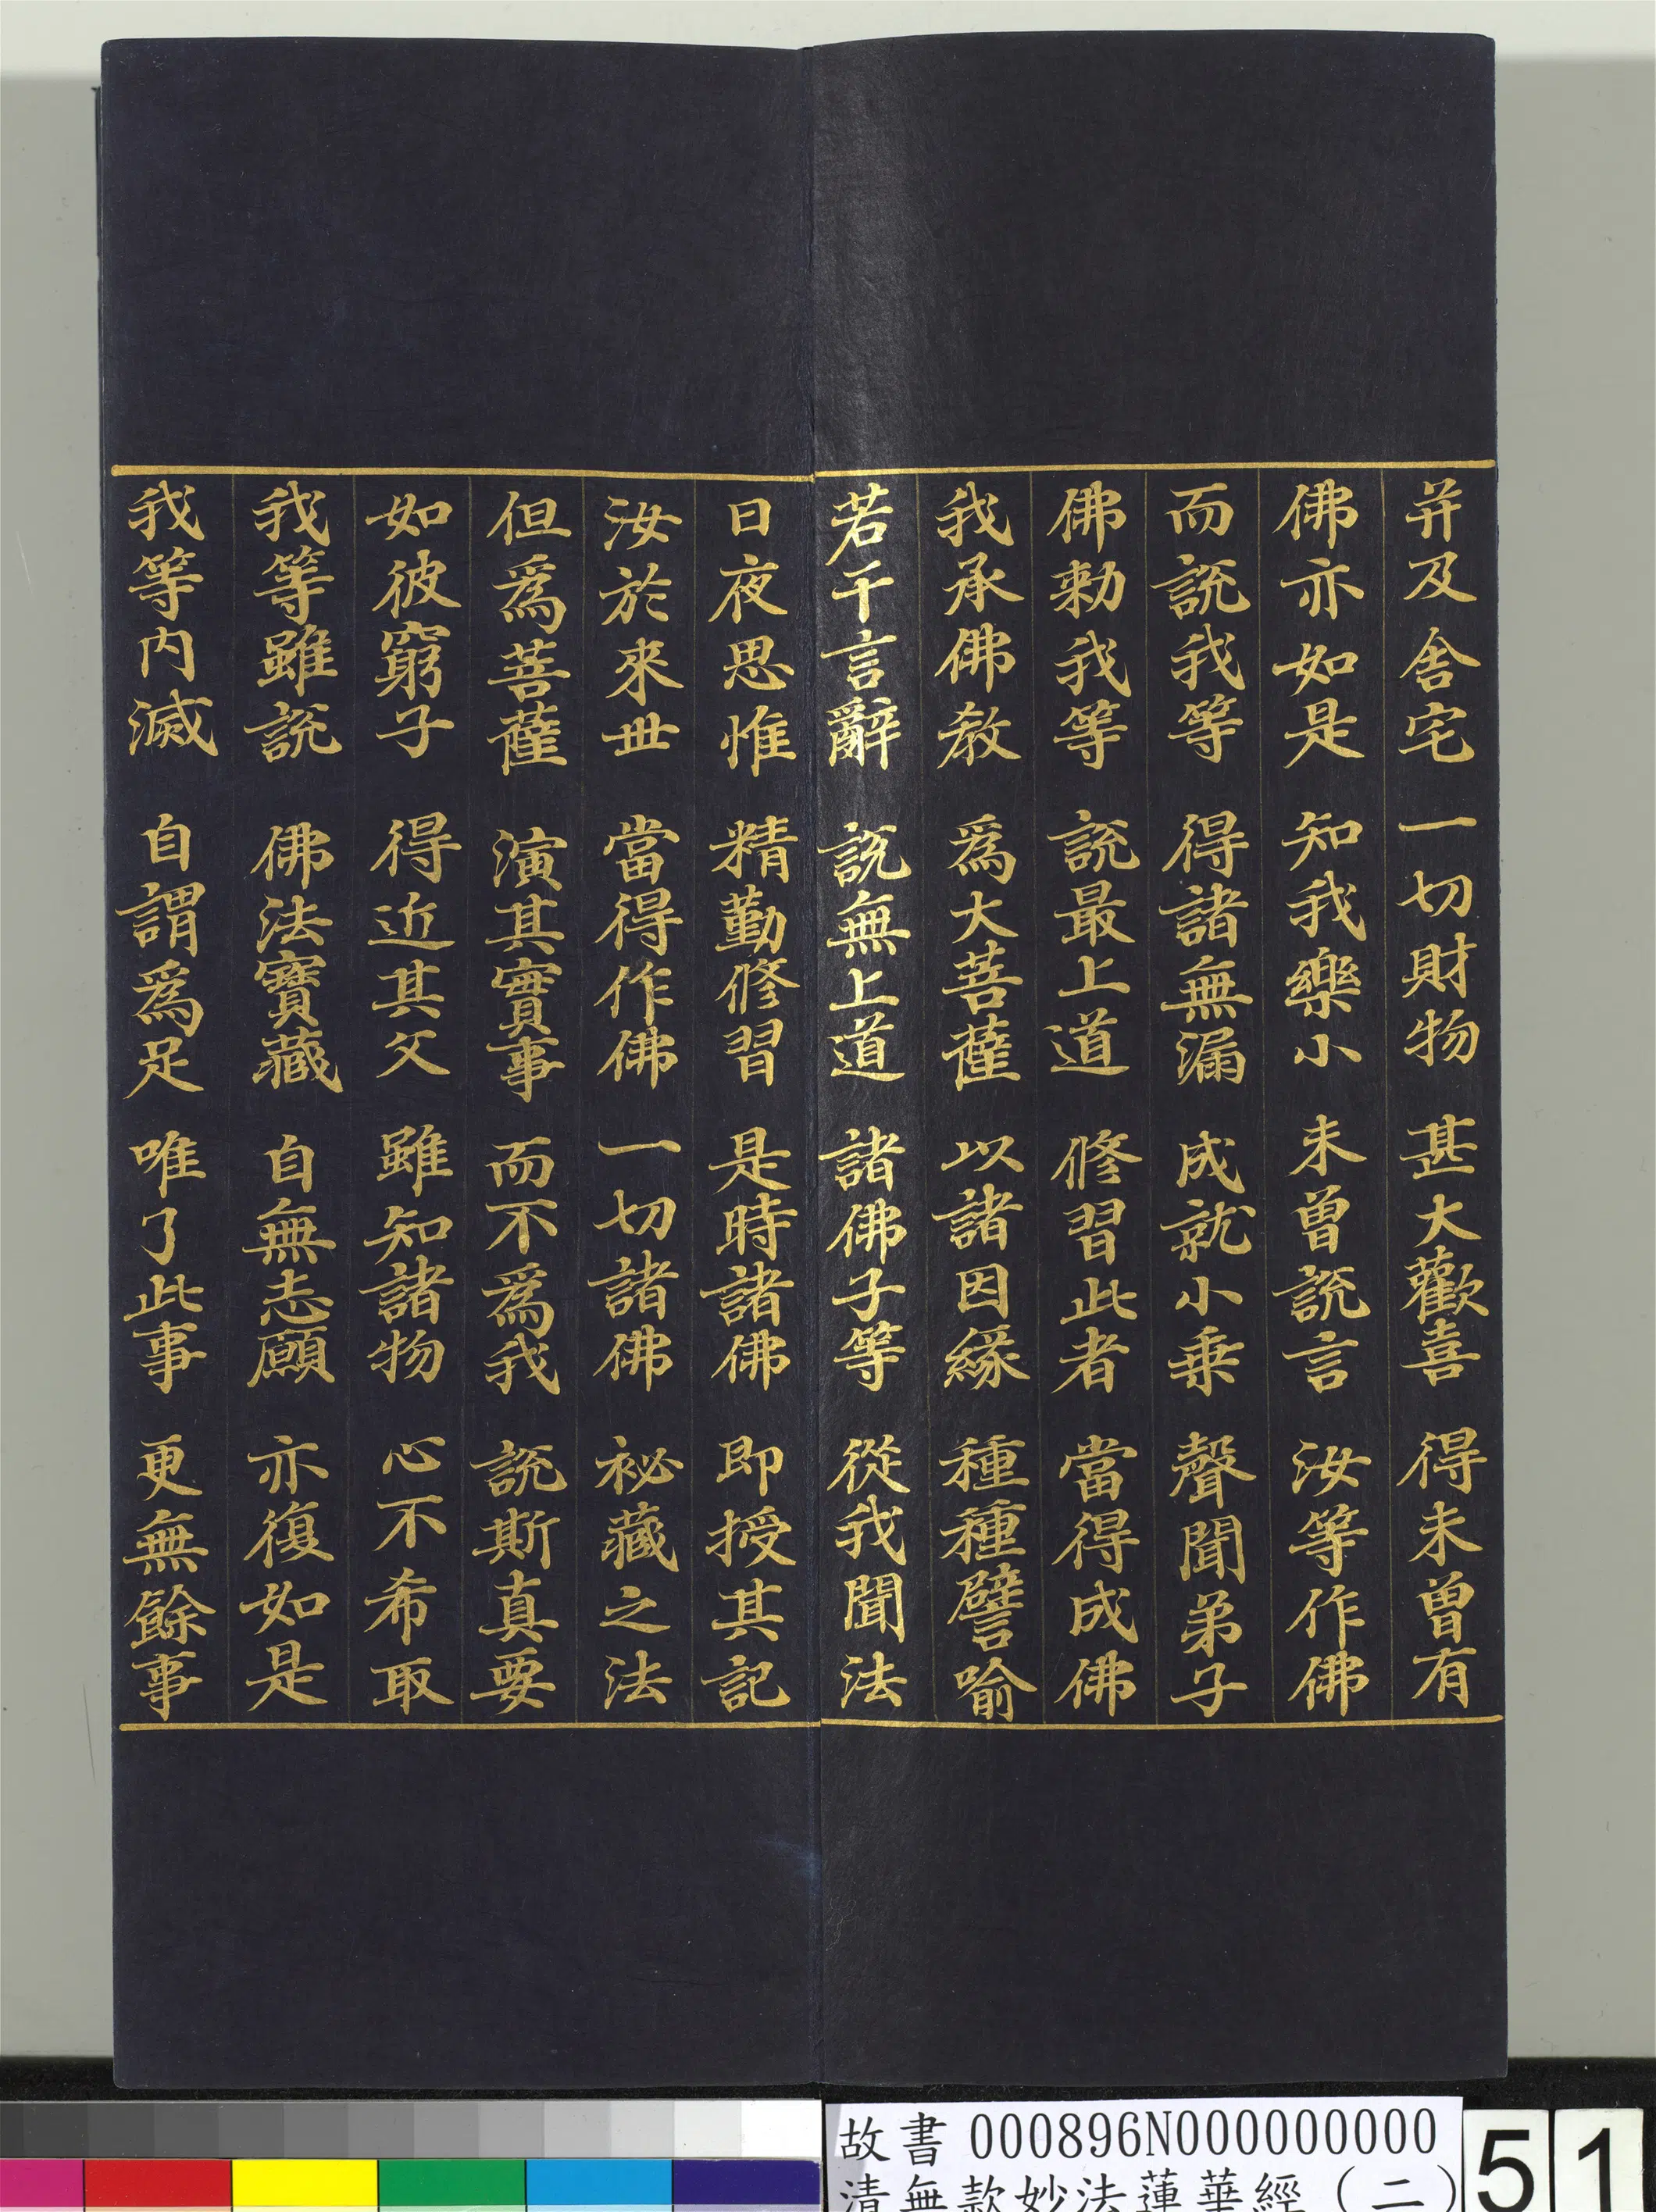 并及舍宅 一切財物 甚大歡喜 得未曾有
佛亦如是 知我樂小 未曾說言 汝等作佛
而說我等 得諸無漏 成就小乗 聲聞弟子
佛勑我等 說最上道 修習此者 當得成佛
我承佛教 爲大菩薩 以諸因緣 種種譬喻
若干言辭 說無上道 諸佛子等 從我聞法
日夜思惟 精勤修習 是時諸佛 即授其記
汝於來世 當得作佛 一切諸佛 祕藏之法
但爲菩薩 演其實事 而不爲我 說斯真要
如彼窮子 得近其父 雖知諸物 心不希取
我等雖說 佛法寶藏 自無志願 亦復如是
我等內滅 自謂爲足 唯了此事 更無餘事
故書 000896N000000000
清無款妙法蓮華經（二）
51